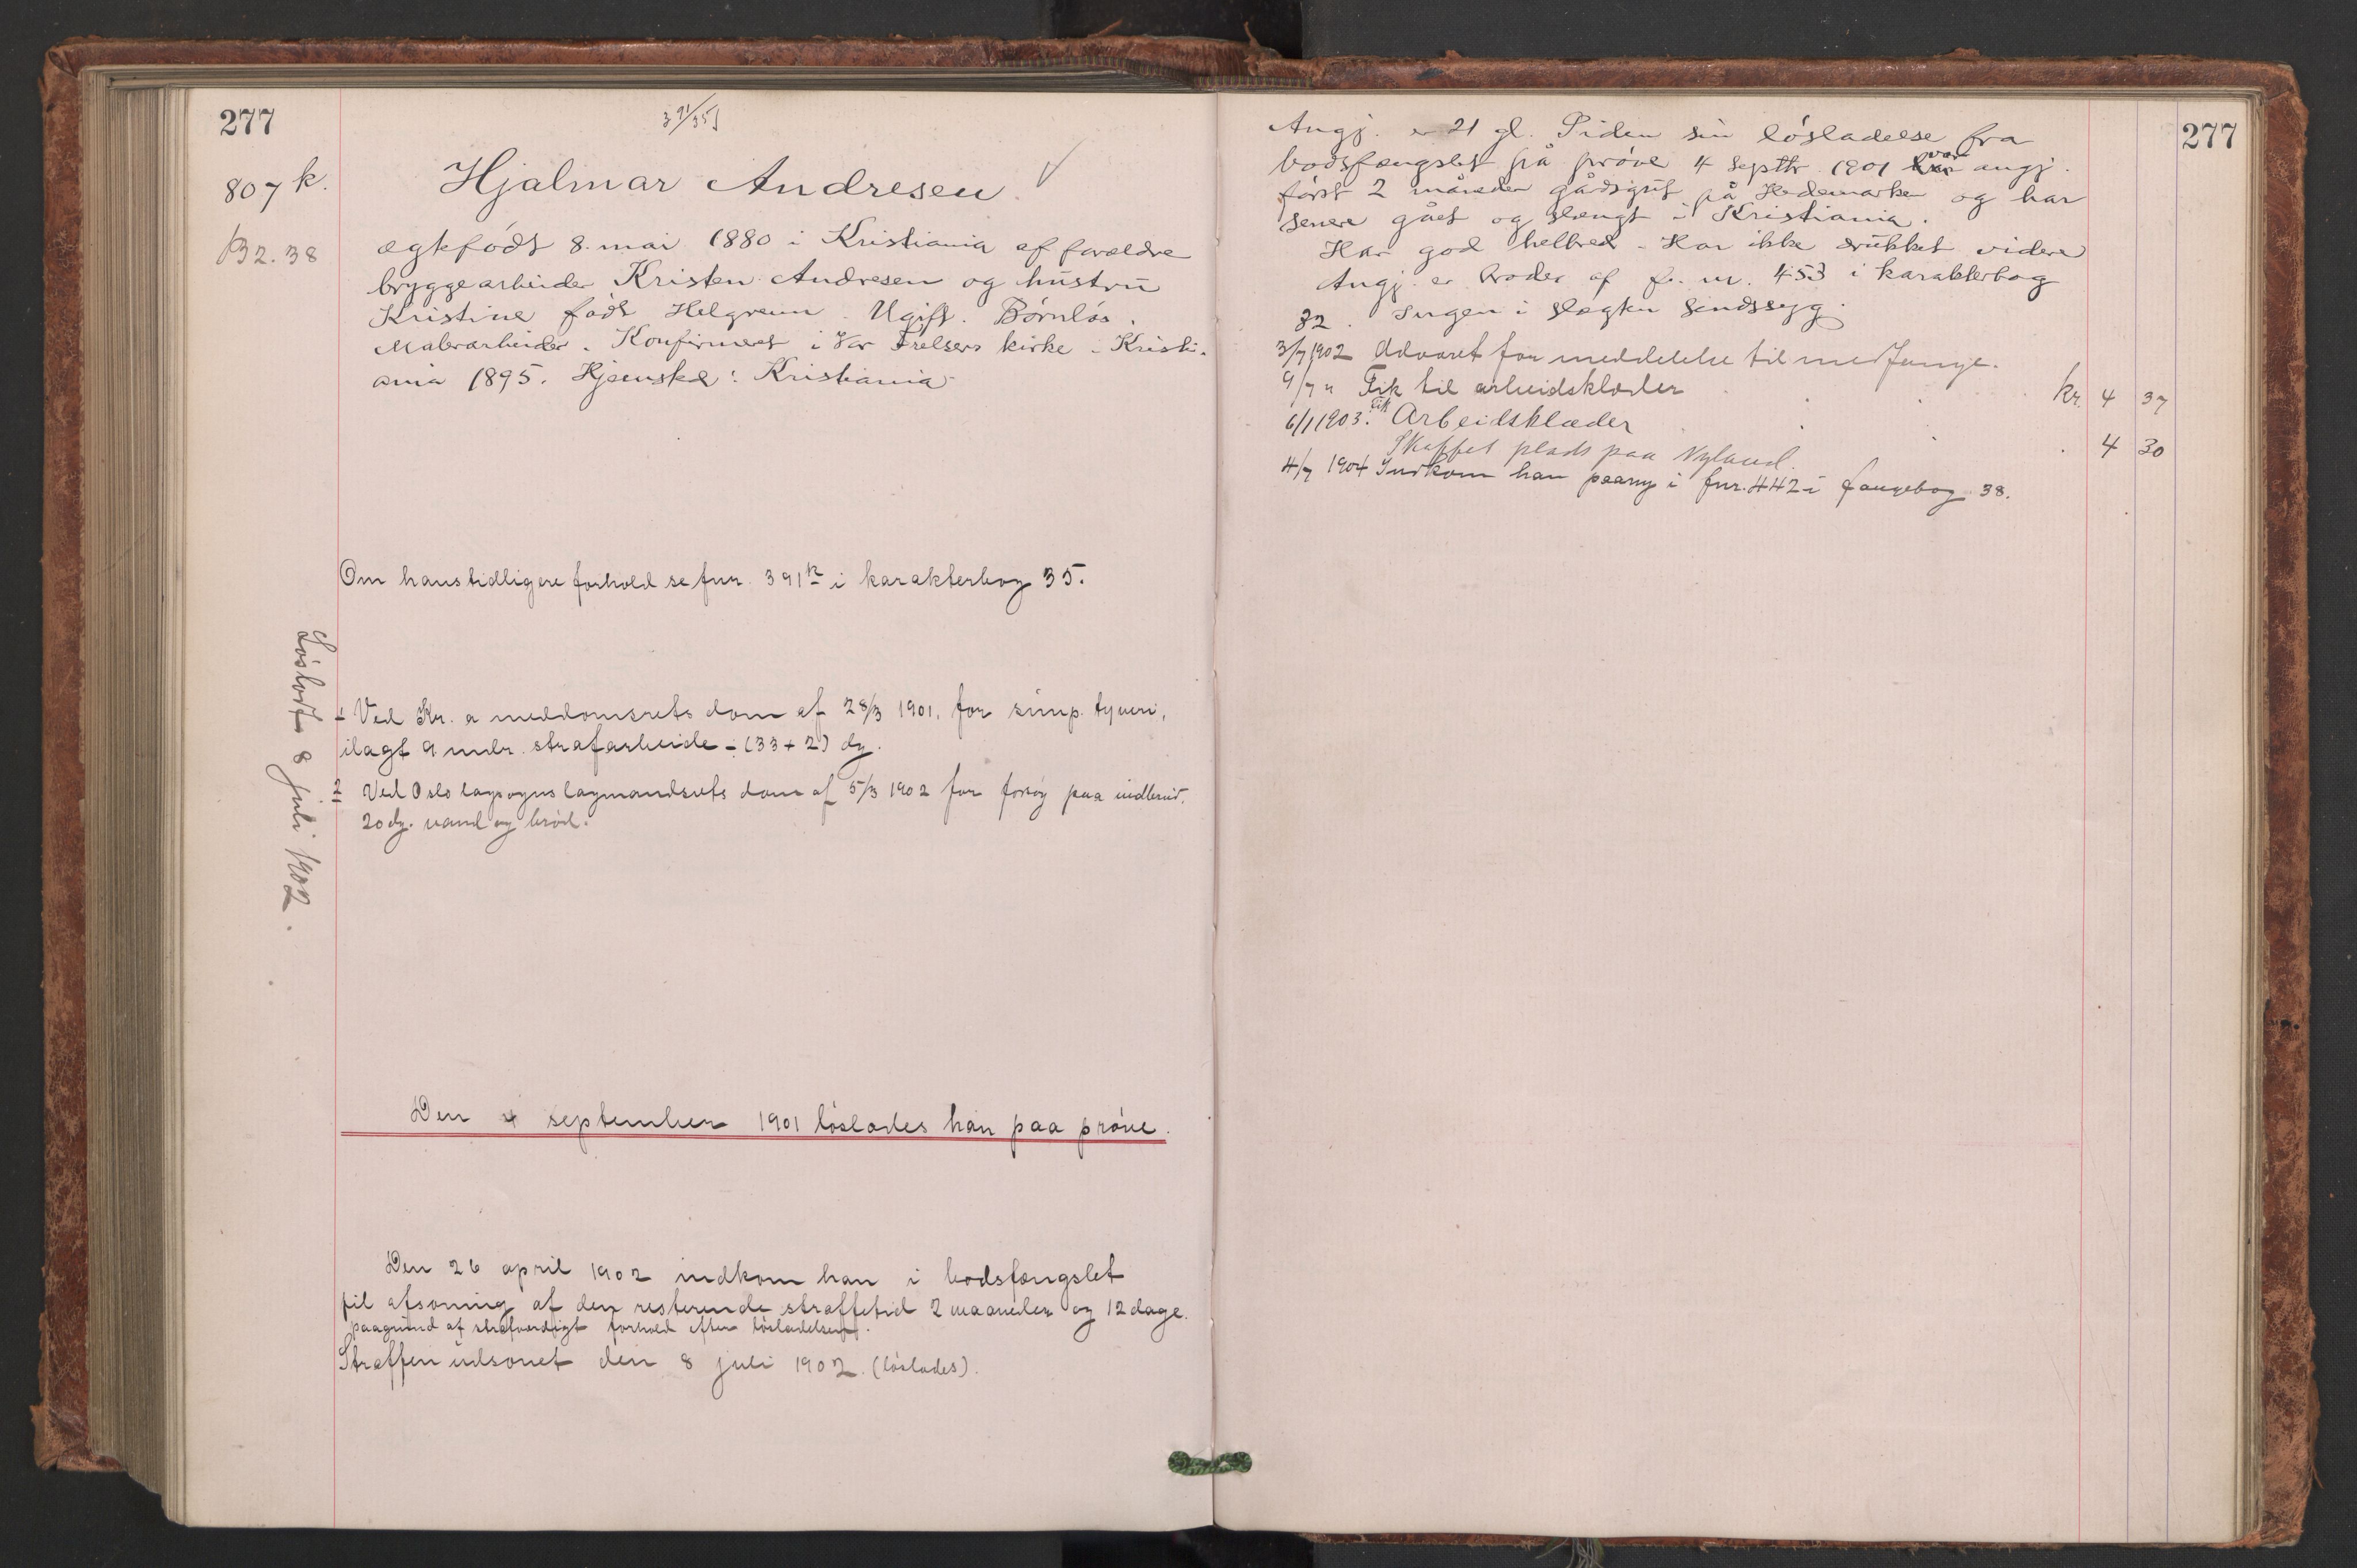 277
391/35
807 k.
Hjalmar Andresen
B2. 38
ægtefödt 8. mai 1880 i Kristiania af forældre
bryggearbeider Kristen Andresen og hustru
Kristine födt Helgreun. Ugift. Börnlös.
Malerarbeider. Konfirmeret i Vor Frelsers kirke i Kristi-
ania 1895. Hjemsted: Kristiania
Om hans tidligere forhold se fnr. 391k i karakterbog 35.
Löslodts 8 juli 1902.
1 Ved Kr. a meddomsrets dom af 28/3 1901, for simp. tyveri,
ilagt 9 mdr. strafarbeide - (33 + 2) dg.
2 Ved Oslo lagsogns lagmandsrets dom af 5/3 1902 for forsög paa indbrud.
20 dg. vand og bröd.
Den 4 september 1901 löslodes han paa pröve.
Den 26 april 1902 indkom han i bodsfængslet
til afsoning af den resterende straffetid 2 maaneder og 12 dage.
paagrund af strafværdigt forhold efter lösladelsen.
Straffen udsonet den 8 juli 1902. (löslades).
277
Angj. er 21 gl. Siden sin lösladelse fra
bodsfængslet på pröve 4 septbr 1901 var angj.
först 2 måneder gårdsgut på Hedemarken og har
senere gået og slængt i Kristiania.
Har god helbred. Har ikke drukket videre
Angj. er broder af f. nr. 453 i karakterbog
32. Ingen i slægten sindssyg.
3/7 1902 Advaret for meddelelse til medfange.
9/7 " Fik til arbeidsklæder kr. 4 37
6/1 1903. Fik Arbeidsklæder 4 30
Skaffet plads paa Nyland.
4/7 1904 Indkom han paany i fnr. 442 i fangebog 38.